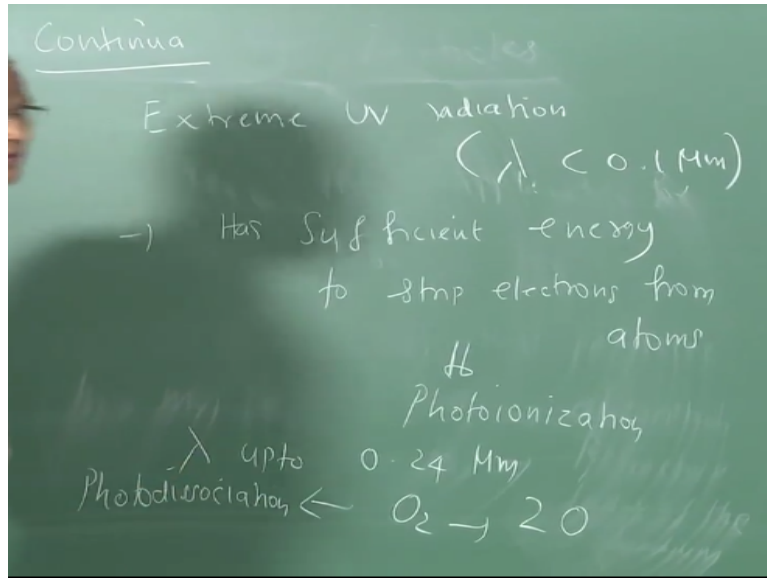 Continua
Extreme UV radiation
(λ < 0.1 μm)
→ Has Sufficient energy
to strip electrons from
atoms
⇓
Photoionization
λ upto 0.24 μm
Photodissociation ← O₂ → 2O